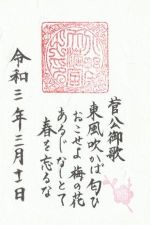 菅公御歌
東風吹かば匂ひ
おこせよ梅の花
あるじなしとて
春を忘るな
令和三年三月十一日